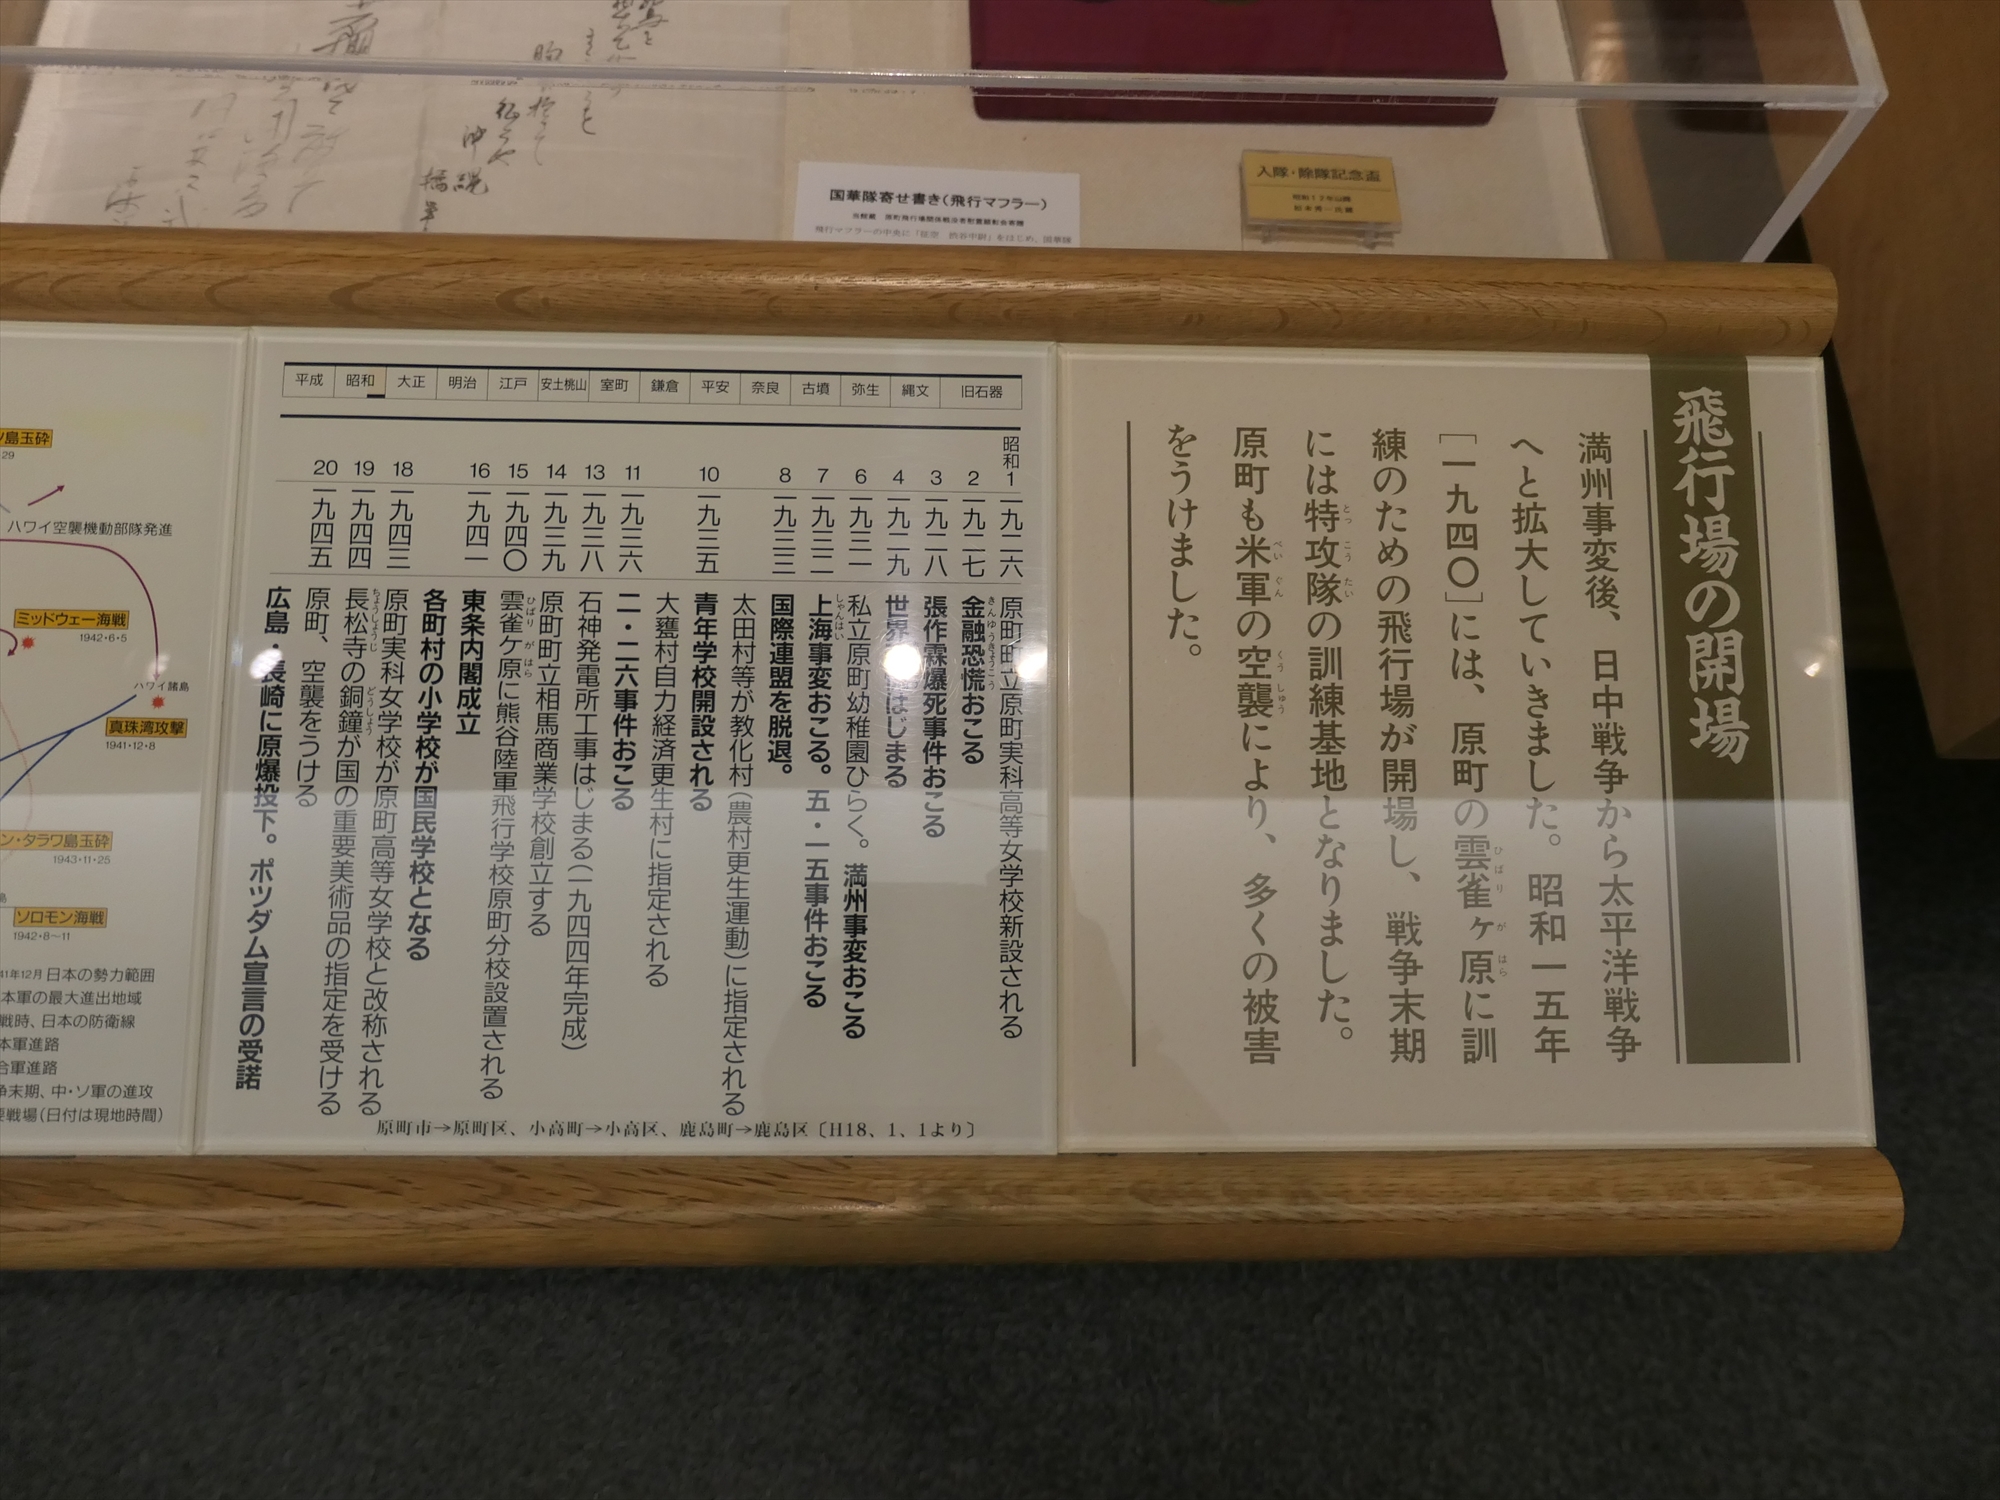 国華隊寄せ書き(飛行マフラー)
入隊・除隊記念盃
飛行場の開場
満州事変後、日中戦争から太平洋戦争
へと拡大していきました。昭和一五年
[一九四〇]には、原町の雲雀ヶ原に訓
練のための飛行場が開場し、戦争末期
には特攻隊の訓練基地となりました。
原町も米軍の空襲により、多くの被害
をうけました。
平成 昭和 大正 明治 江戸 安土桃山 室町 鎌倉 平安 奈良 古墳 弥生 縄文 旧石器
昭和1 一九二六 原町町立原町実科高等女学校新設される
2 一九二七 金融恐慌おこる
3 一九二八 張作霖爆死事件おこる
4 一九二九 世界 はじまる
6 一九三一 私立原町幼稚園ひらく。満州事変おこる
7 一九三二 上海事変おこる。五・一五事件おこる
8 一九三三 国際連盟を脱退。
太田村等が教化村(農村更生運動)に指定される
10 一九三五 青年学校開設される
大甕村自力経済更生村に指定される
11 一九三六 二・二六事件おこる
13 一九三八 石神発電所工事はじまる(一九四四年完成)
14 一九三九 原町町立相馬商業学校創立する
15 一九四〇 雲雀ヶ原に熊谷陸軍飛行学校原町分校設置される
16 一九四一 東条内閣成立
各町村の小学校が国民学校となる
18 一九四三 原町実科女学校が原町高等女学校と改称される
19 一九四四 長松寺の銅鐘が国の重要美術品の指定を受ける
20 一九四五 原町、空襲をうける
広島・長崎に原爆投下。ポツダム宣言の受諾
原町市→原町区、小高町→小高区、鹿島町→鹿島区〔H18、1、1より〕
島玉砕
29
ハワイ空襲機動部隊発進
ミッドウェー海戦
1942・6・5
ハワイ諸島
真珠湾攻撃
1941・12・8
ン・タラワ島玉砕
1943・11・25
島
ソロモン海戦
1942・8〜11
41年12月 日本の勢力範囲
本軍の最大進出地域
戦時、日本の防衛線
本軍進路
合軍進路
争末期、中・ソ軍の進攻
要戦場(日付は現地時間)